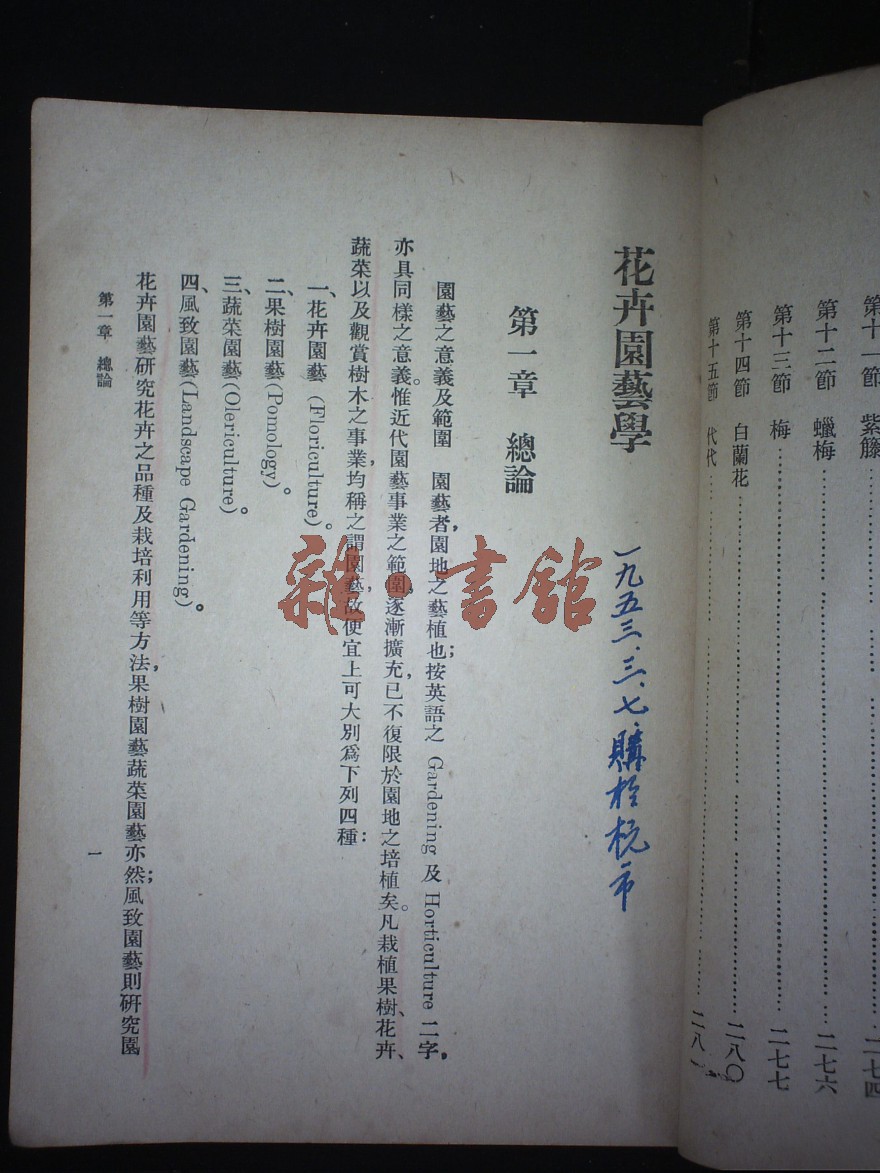 第十一節 紫籐……二七四
第十二節 蠟梅……二七六
第十三節 梅……二七七
第十四節 白蘭花……二八〇
第十五節 代代……二八一
花卉園藝學
一九五三、三、七、購於杭市
第一章 總論
園藝之意義及範圍 園藝者,園地之藝植也;按英語之 Gardening 及 Horticulture 二字,
亦具同樣之意義。惟近代園藝事業之範圍,逐漸擴充,已不復限於園地之培植矣。凡栽植果樹、花卉、
蔬菜以及觀賞樹木之事業,均稱之謂園藝,故便宜上可大別爲下列四種:
一、花卉園藝 (Floriculture)。
二、果樹園藝(Pomology)。
三、蔬菜園藝(Olericulture)。
四、風致園藝(Landscape Gardening)。
花卉園藝研究花卉之品種及栽培利用等方法,果樹園藝蔬菜園藝亦然;風致園藝則研究園
第一章 總論
一
雜·書館